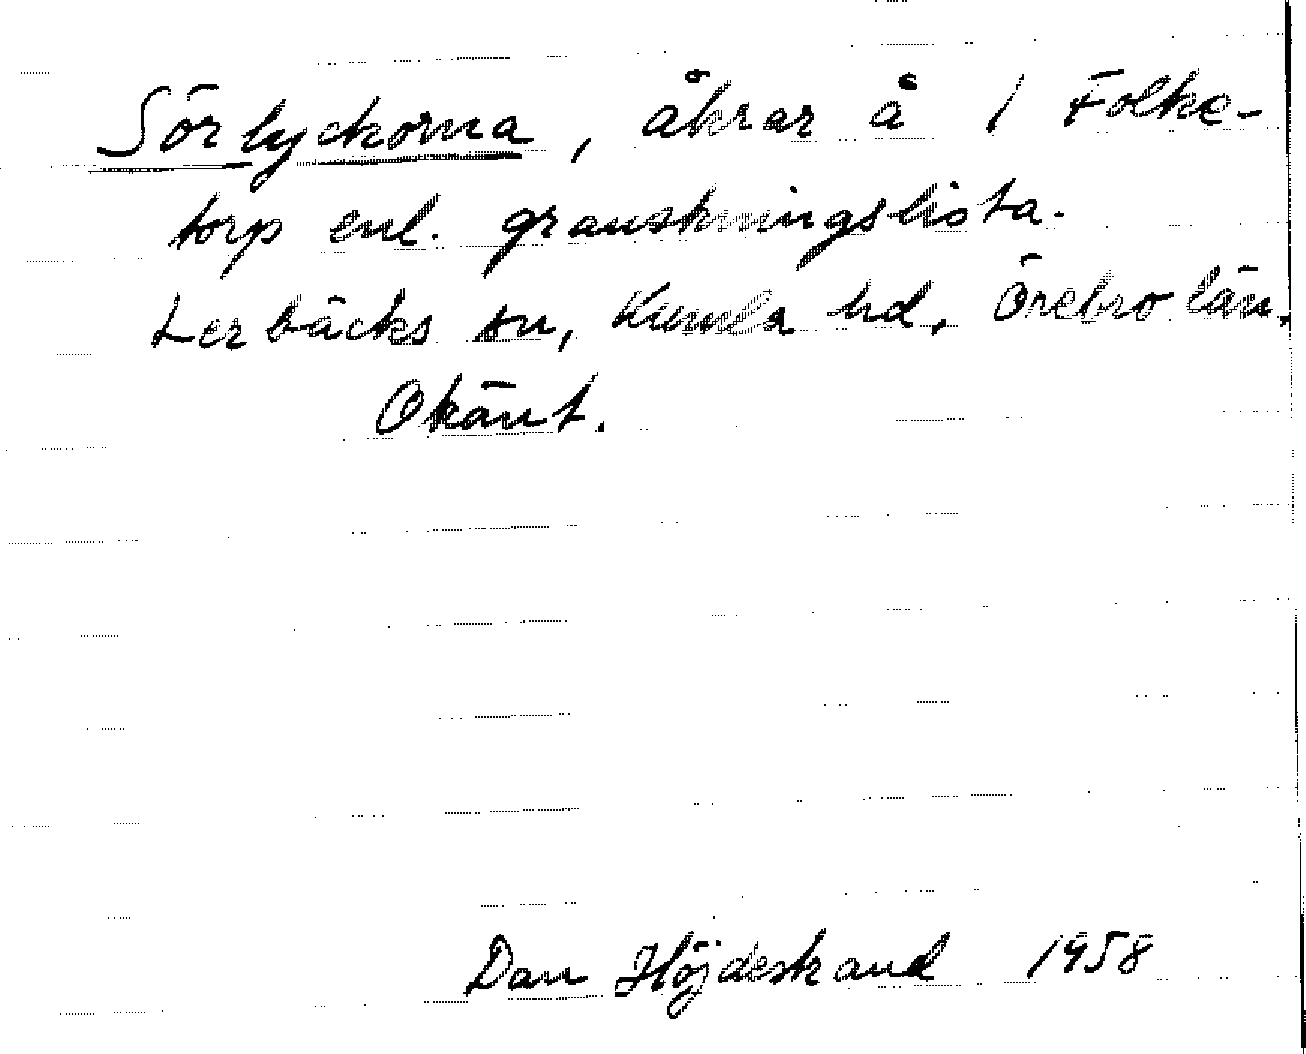 Sörlyckorna, åkrar å 1 Folke-
torp enl. granskningslista.
Lerbäcks sn, Kumla hd, Örebro län.
Okänt.
Dan Höjdestrand 1958